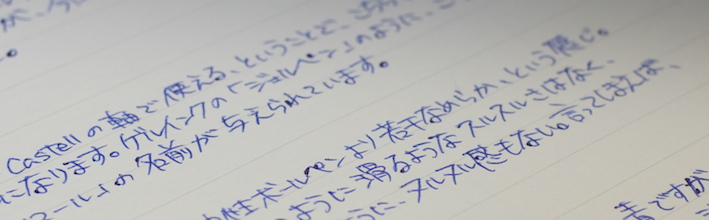 が、
Castellの軸で使える、ということで、こちら
になります。ゲルインクの「ジェルペン」のように、こ
ール」の名前が与えられています。
性ボールペンより若干なめらか、という感じ。
ように滑るようなスルスルさはなく、
うに、ヌルヌル感もない。言ってしまえば、
ですが